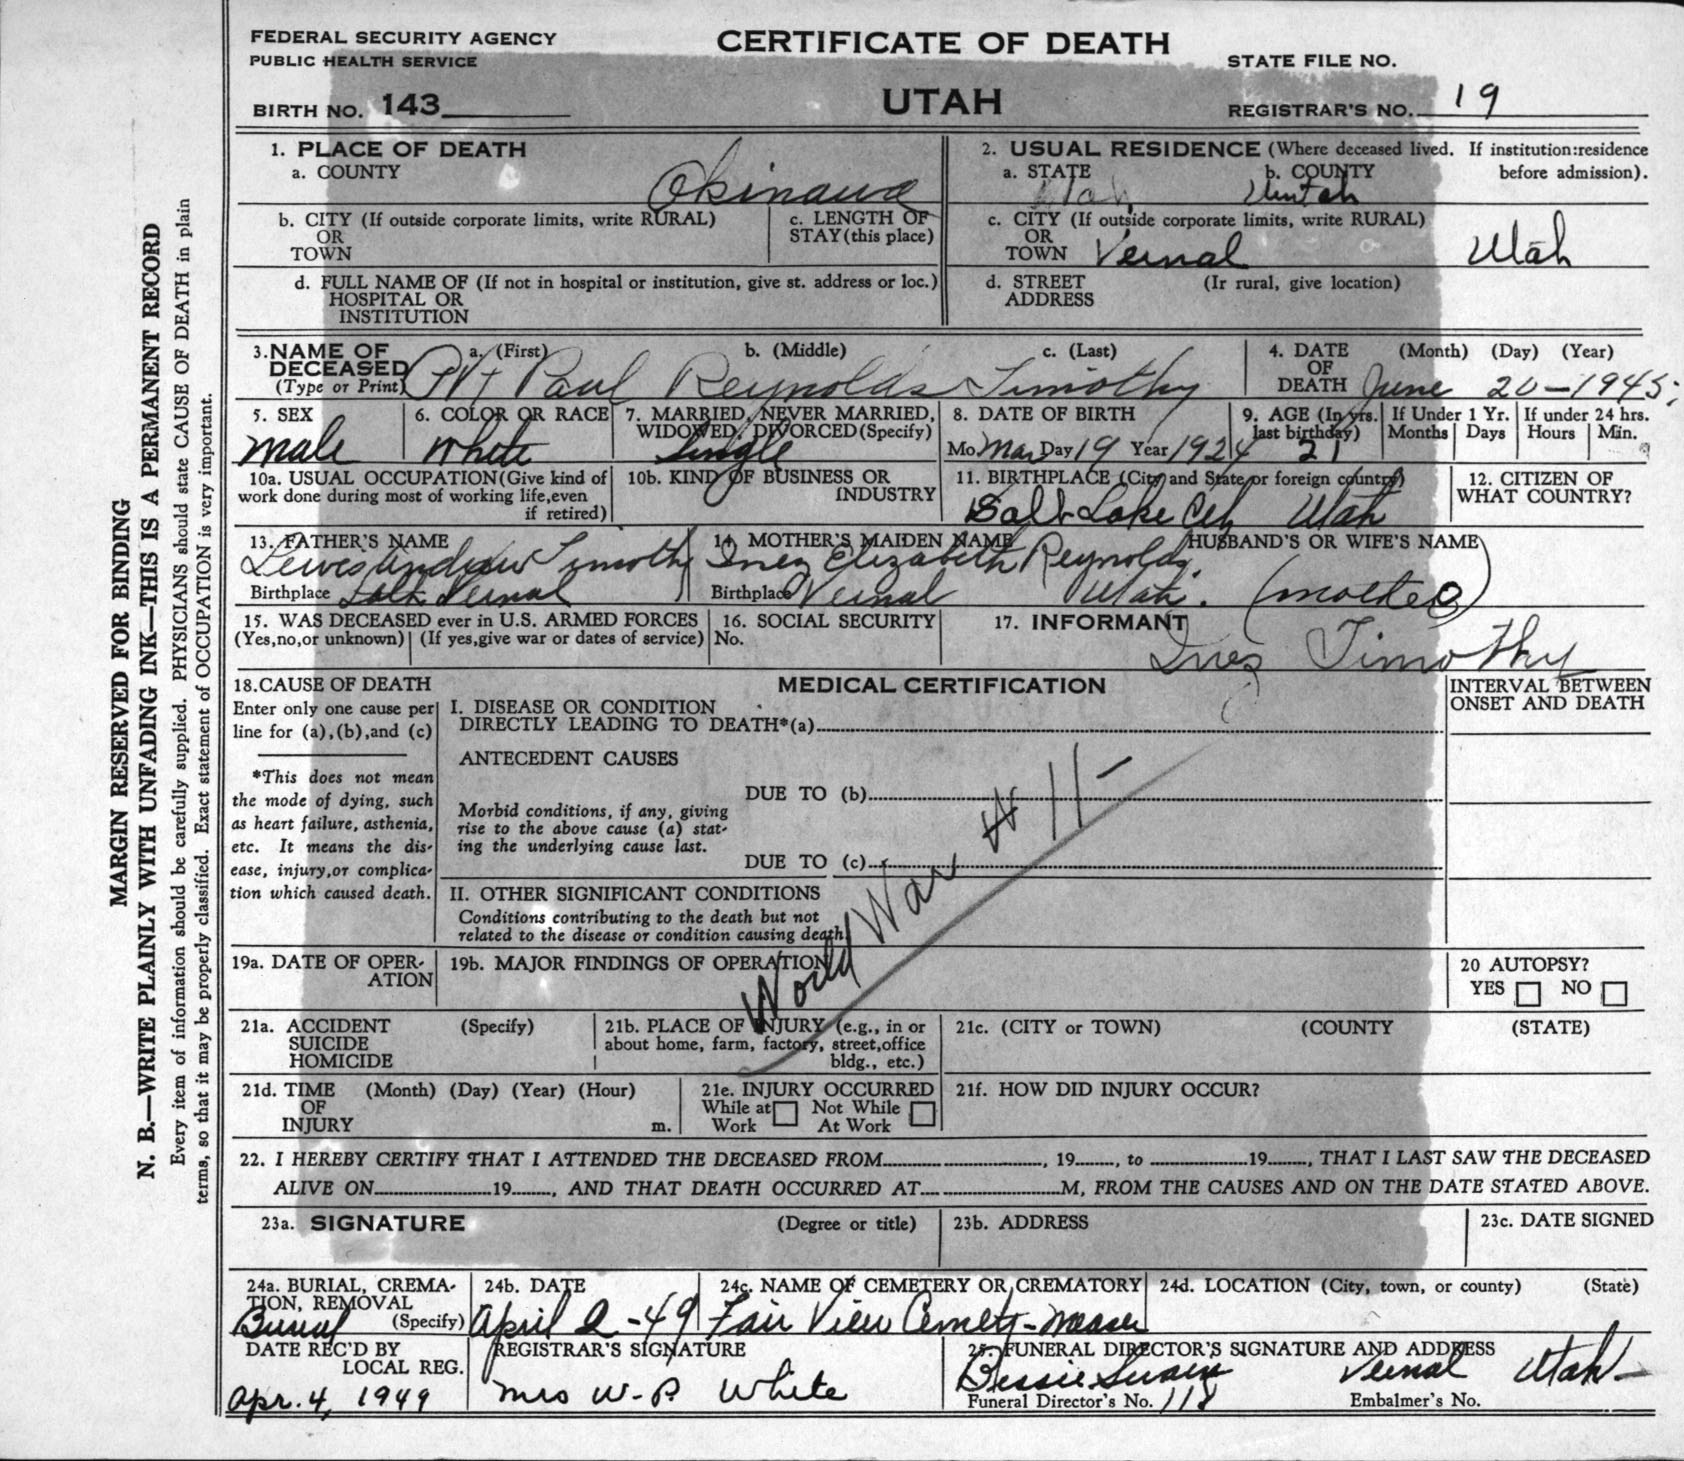 FEDERAL SECURITY AGENCY
PUBLIC HEALTH SERVICE
CERTIFICATE OF DEATH
STATE FILE NO.
BIRTH NO. 143
UTAH
REGISTRAR'S NO. 19
1. PLACE OF DEATH
a. COUNTY
Okinawa
2. USUAL RESIDENCE (Where deceased lived. If institution:residence before admission).
a. STATE Utah b. COUNTY Uintah
b. CITY (If outside corporate limits, write RURAL)
OR
TOWN
c. LENGTH OF
STAY (this place)
c. CITY (If outside corporate limits, write RURAL)
OR
TOWN Vernal Utah
d. FULL NAME OF (If not in hospital or institution, give st. address or loc.)
HOSPITAL OR
INSTITUTION
d. STREET (Ir rural, give location)
ADDRESS
3. NAME OF DECEASED (Type or Print)
a. (First) b. (Middle) c. (Last)
Pvt Paul Reynolds Timothy
4. DATE OF DEATH (Month) (Day) (Year)
June 20-1945;
5. SEX
male
6. COLOR OR RACE
White
7. MARRIED, NEVER MARRIED, WIDOWED, DIVORCED (Specify)
Single
8. DATE OF BIRTH
Mo. Mar Day 19 Year 1924
9. AGE (In yrs. last birthday)
21
If Under 1 Yr. Months Days
If under 24 hrs. Hours Min.
10a. USUAL OCCUPATION (Give kind of work done during most of working life, even if retired)
10b. KIND OF BUSINESS OR INDUSTRY
11. BIRTHPLACE (City and State or foreign country)
Salt Lake City Utah
12. CITIZEN OF WHAT COUNTRY?
13. FATHER'S NAME
Lewis Andrew Timothy
Birthplace Vernal
14. MOTHER'S MAIDEN NAME
Inez Elizabeth Reynolds.
Birthplace Vernal Utah.
HUSBAND'S OR WIFE'S NAME
(mother)
15. WAS DECEASED ever in U.S. ARMED FORCES
(Yes, no, or unknown) (If yes, give war or dates of service)
16. SOCIAL SECURITY No.
17. INFORMANT
Inez Timothy
18. CAUSE OF DEATH
Enter only one cause per line for (a), (b), and (c)
*This does not mean the mode of dying, such as heart failure, asthenia, etc. It means the disease, injury, or complication which caused death.
MEDICAL CERTIFICATION
INTERVAL BETWEEN ONSET AND DEATH
I. DISEASE OR CONDITION
DIRECTLY LEADING TO DEATH*(a)
ANTECEDENT CAUSES
DUE TO (b)
Morbid conditions, if any, giving rise to the above cause (a) stating the underlying cause last.
DUE TO (c)
II. OTHER SIGNIFICANT CONDITIONS
Conditions contributing to the death but not related to the disease or condition causing death.
World War # 11-
19a. DATE OF OPERATION
19b. MAJOR FINDINGS OF OPERATION
20 AUTOPSY?
YES NO
21a. ACCIDENT (Specify)
SUICIDE
HOMICIDE
21b. PLACE OF INJURY (e.g., in or about home, farm, factory, street, office bldg., etc.)
21c. (CITY or TOWN) (COUNTY (STATE)
21d. TIME (Month) (Day) (Year) (Hour)
OF
INJURY m.
21e. INJURY OCCURRED
While at Work Not While At Work
21f. HOW DID INJURY OCCUR?
22. I HEREBY CERTIFY THAT I ATTENDED THE DECEASED FROM , 19 , to 19 , THAT I LAST SAW THE DECEASED
ALIVE ON 19 , AND THAT DEATH OCCURRED AT M, FROM THE CAUSES AND ON THE DATE STATED ABOVE.
23a. SIGNATURE (Degree or title)
23b. ADDRESS
23c. DATE SIGNED
24a. BURIAL, CREMATION, REMOVAL (Specify)
Burial
24b. DATE
April 2-49
24c. NAME OF CEMETERY OR CREMATORY
Fair View
24d. LOCATION (City, town, or county) (State)
DATE REC'D BY LOCAL REG.
Apr. 4, 1949
REGISTRAR'S SIGNATURE
Mrs W. P. White
25. FUNERAL DIRECTOR'S SIGNATURE AND ADDRESS
Bessie Swain Vernal Utah-
Funeral Director's No. 118
Embalmer's No.
MARGIN RESERVED FOR BINDING
N. B.—WRITE PLAINLY WITH UNFADING INK—THIS IS A PERMANENT RECORD
Every item of information should be carefully supplied. PHYSICIANS should state CAUSE OF DEATH in plain
terms, so that it may be properly classified. Exact statement of OCCUPATION is very important.